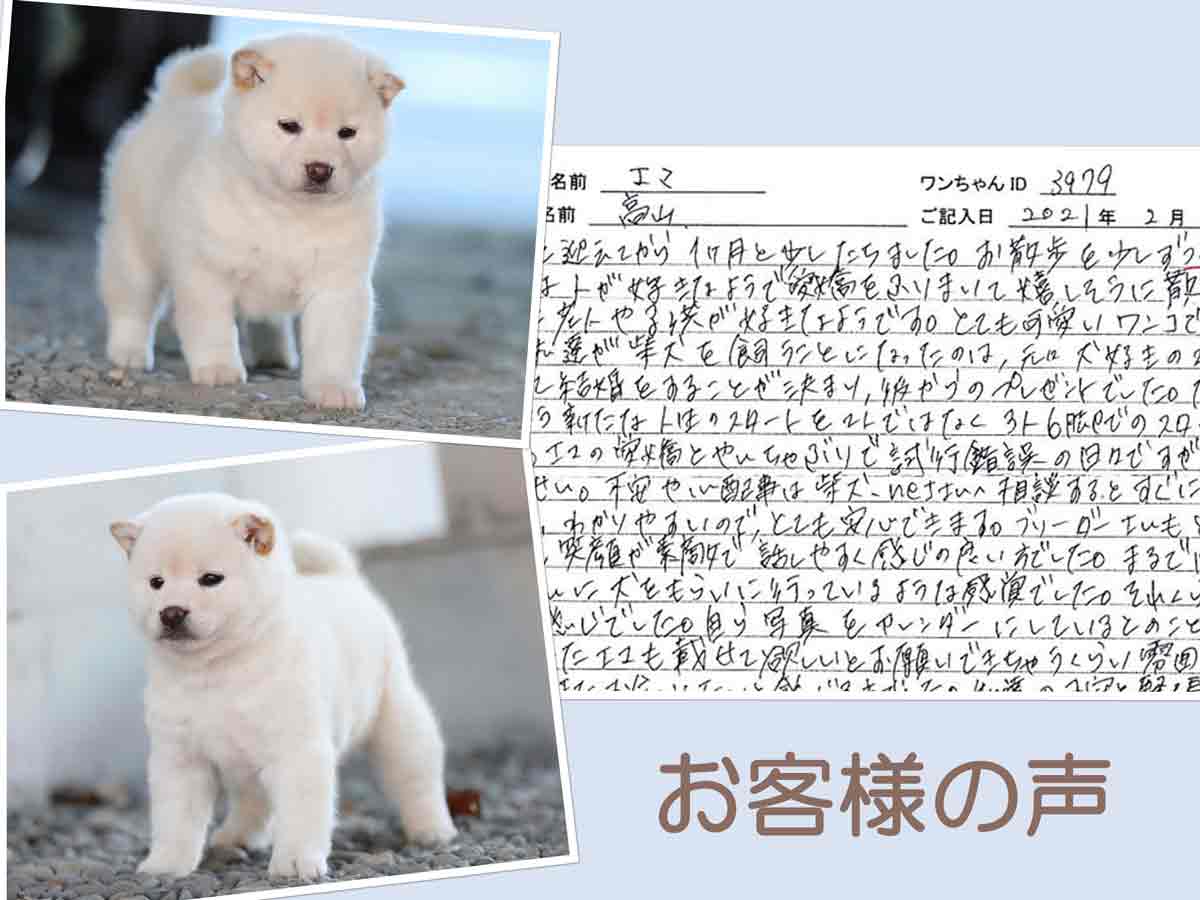 名前 エマ
ワンちゃんID 3979
名前 高山
ご記入日 2021年 2月
迎えてから 1ヶ月と少したちました。お散歩を少しずつ
は人が好きなようで愛嬌をふりまいて嬉しそうに散
や子供が好きなようです。とても可愛いワンコで
達が柴犬を飼うことになったのは、元々犬好きの
て結婚をすることが決まり、彼からのプレゼントでした。
新たな人生のスタートを2人ではなく3人6脚でのスタ
エマの愛嬌とやんちゃぶりで試行錯誤の日々ですが
せん。不安や心配事は柴犬-netさんへ相談するとすぐに
わかりやすいので、とても安心できます。ブリーダーさんも
笑顔が素敵で話しやすく感じの良い方でした。まるで
に犬をもらいに行っているような感覚でした。それくらい
感じでした。自ら写真をカレンダーにしているとのこと
エマも載せて欲しいとお願いできちゃうくらい雰囲
お客様の声